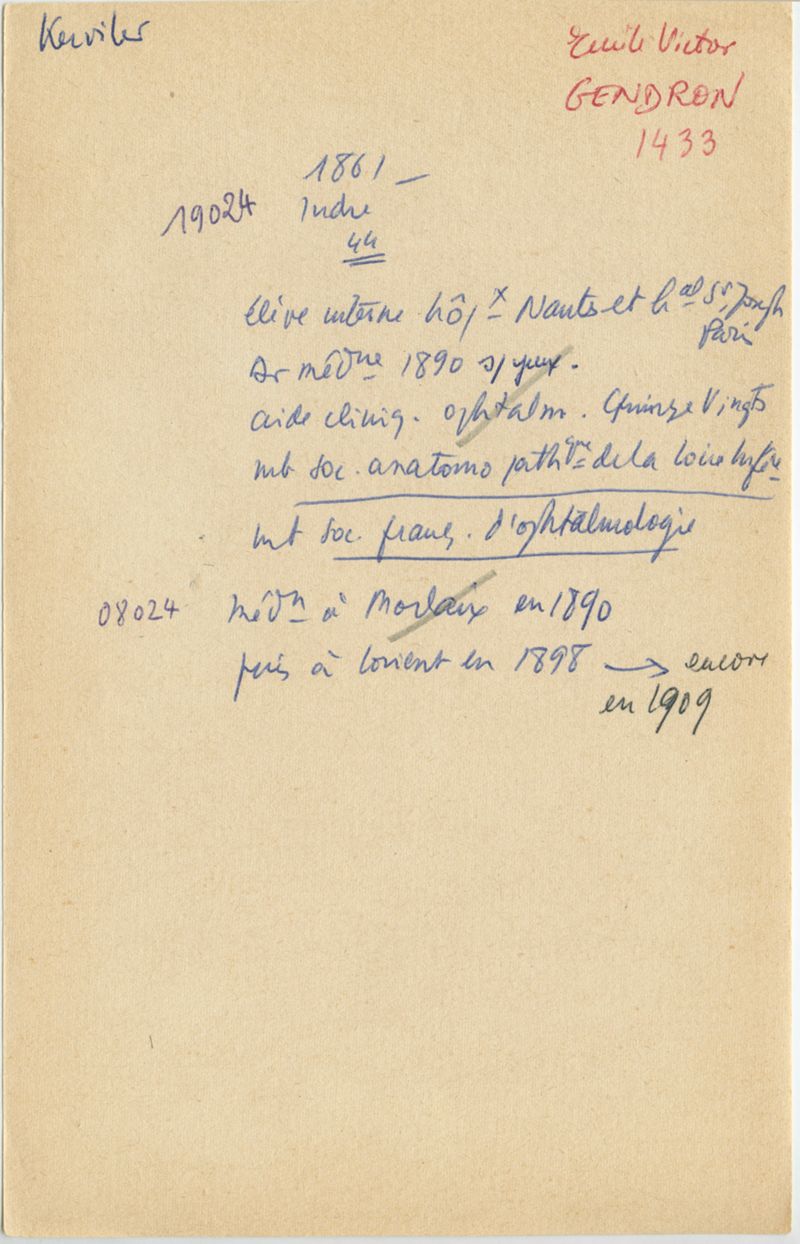 Kerviler
Emile Victor
GENDRON
1433
1861 _
19024 Indre
44
Elève interne hôpx Nantes et hal St Joseph
Paris
Dr médne 1890 s/ yeux.
aide cliniq. ophtalm. Quinze Vingts
mb soc. anatomo pathque de la Loire Infére
mb soc. franç. d'ophtalmologie
08024 médn à Morlaix en 1890
puis à Lorient en 1898 → encore
en 1909